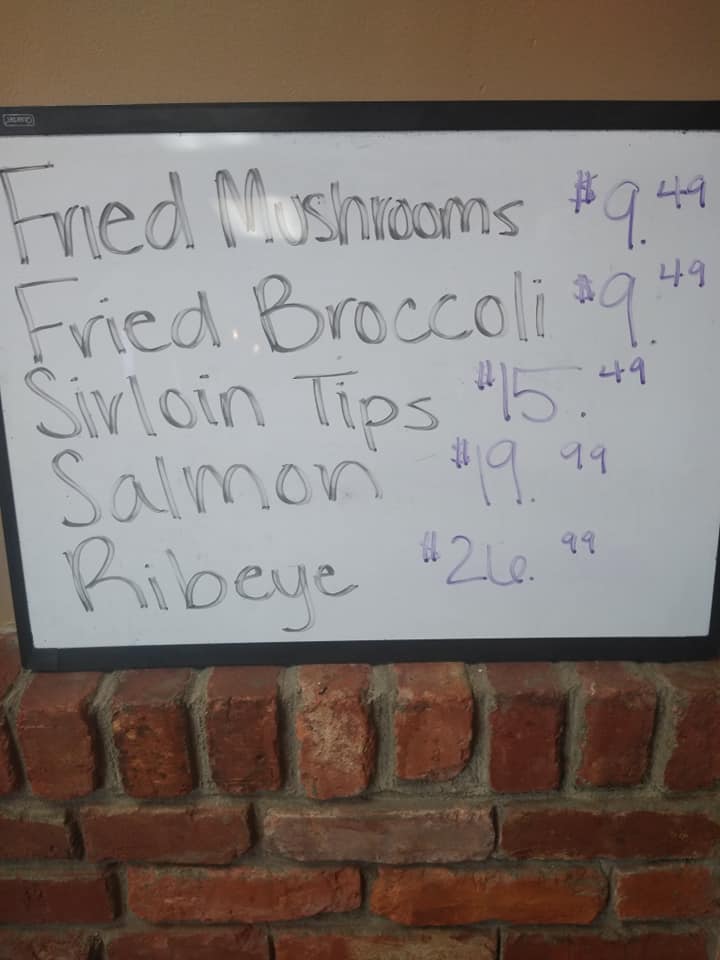 Quartet
Fried Mushrooms $9.49
Fried Broccoli $9.49
Sirloin Tips $15.49
Salmon $19.99
Ribeye $26.99